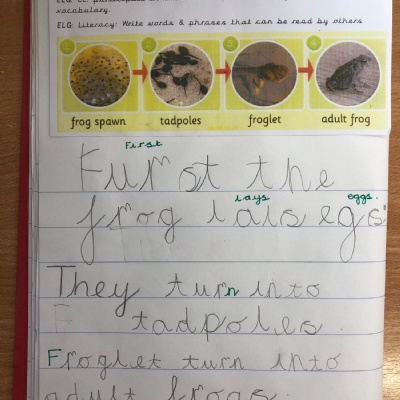 vocabulary.
ELG: Literacy: Write words & phrases that can be read by others
frog spawn tadpoles froglet adult frog
First
Furst the
lays eggs.
frog lais egs
They turn into
tadpoles.
Froglet turn into
adult frogs.